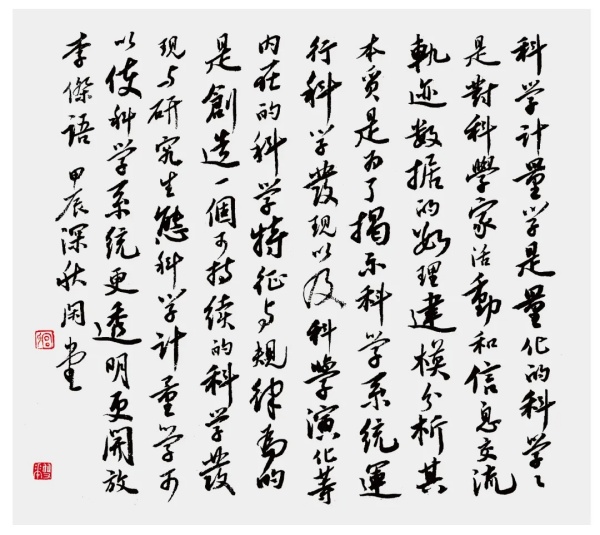 科学计量学是量化的科学〻
是對科學家活動和信息交流
軌迹数据的数理建模分析其
本质是为了揭示科学系统運
行科学發现以及科學演化等
内在的科学特征与規律為的
是創造一個可持续的科学發
现与研究生態科学计量学可
以使科学系统更透明更開放
李傑語 甲辰深秋闲堂